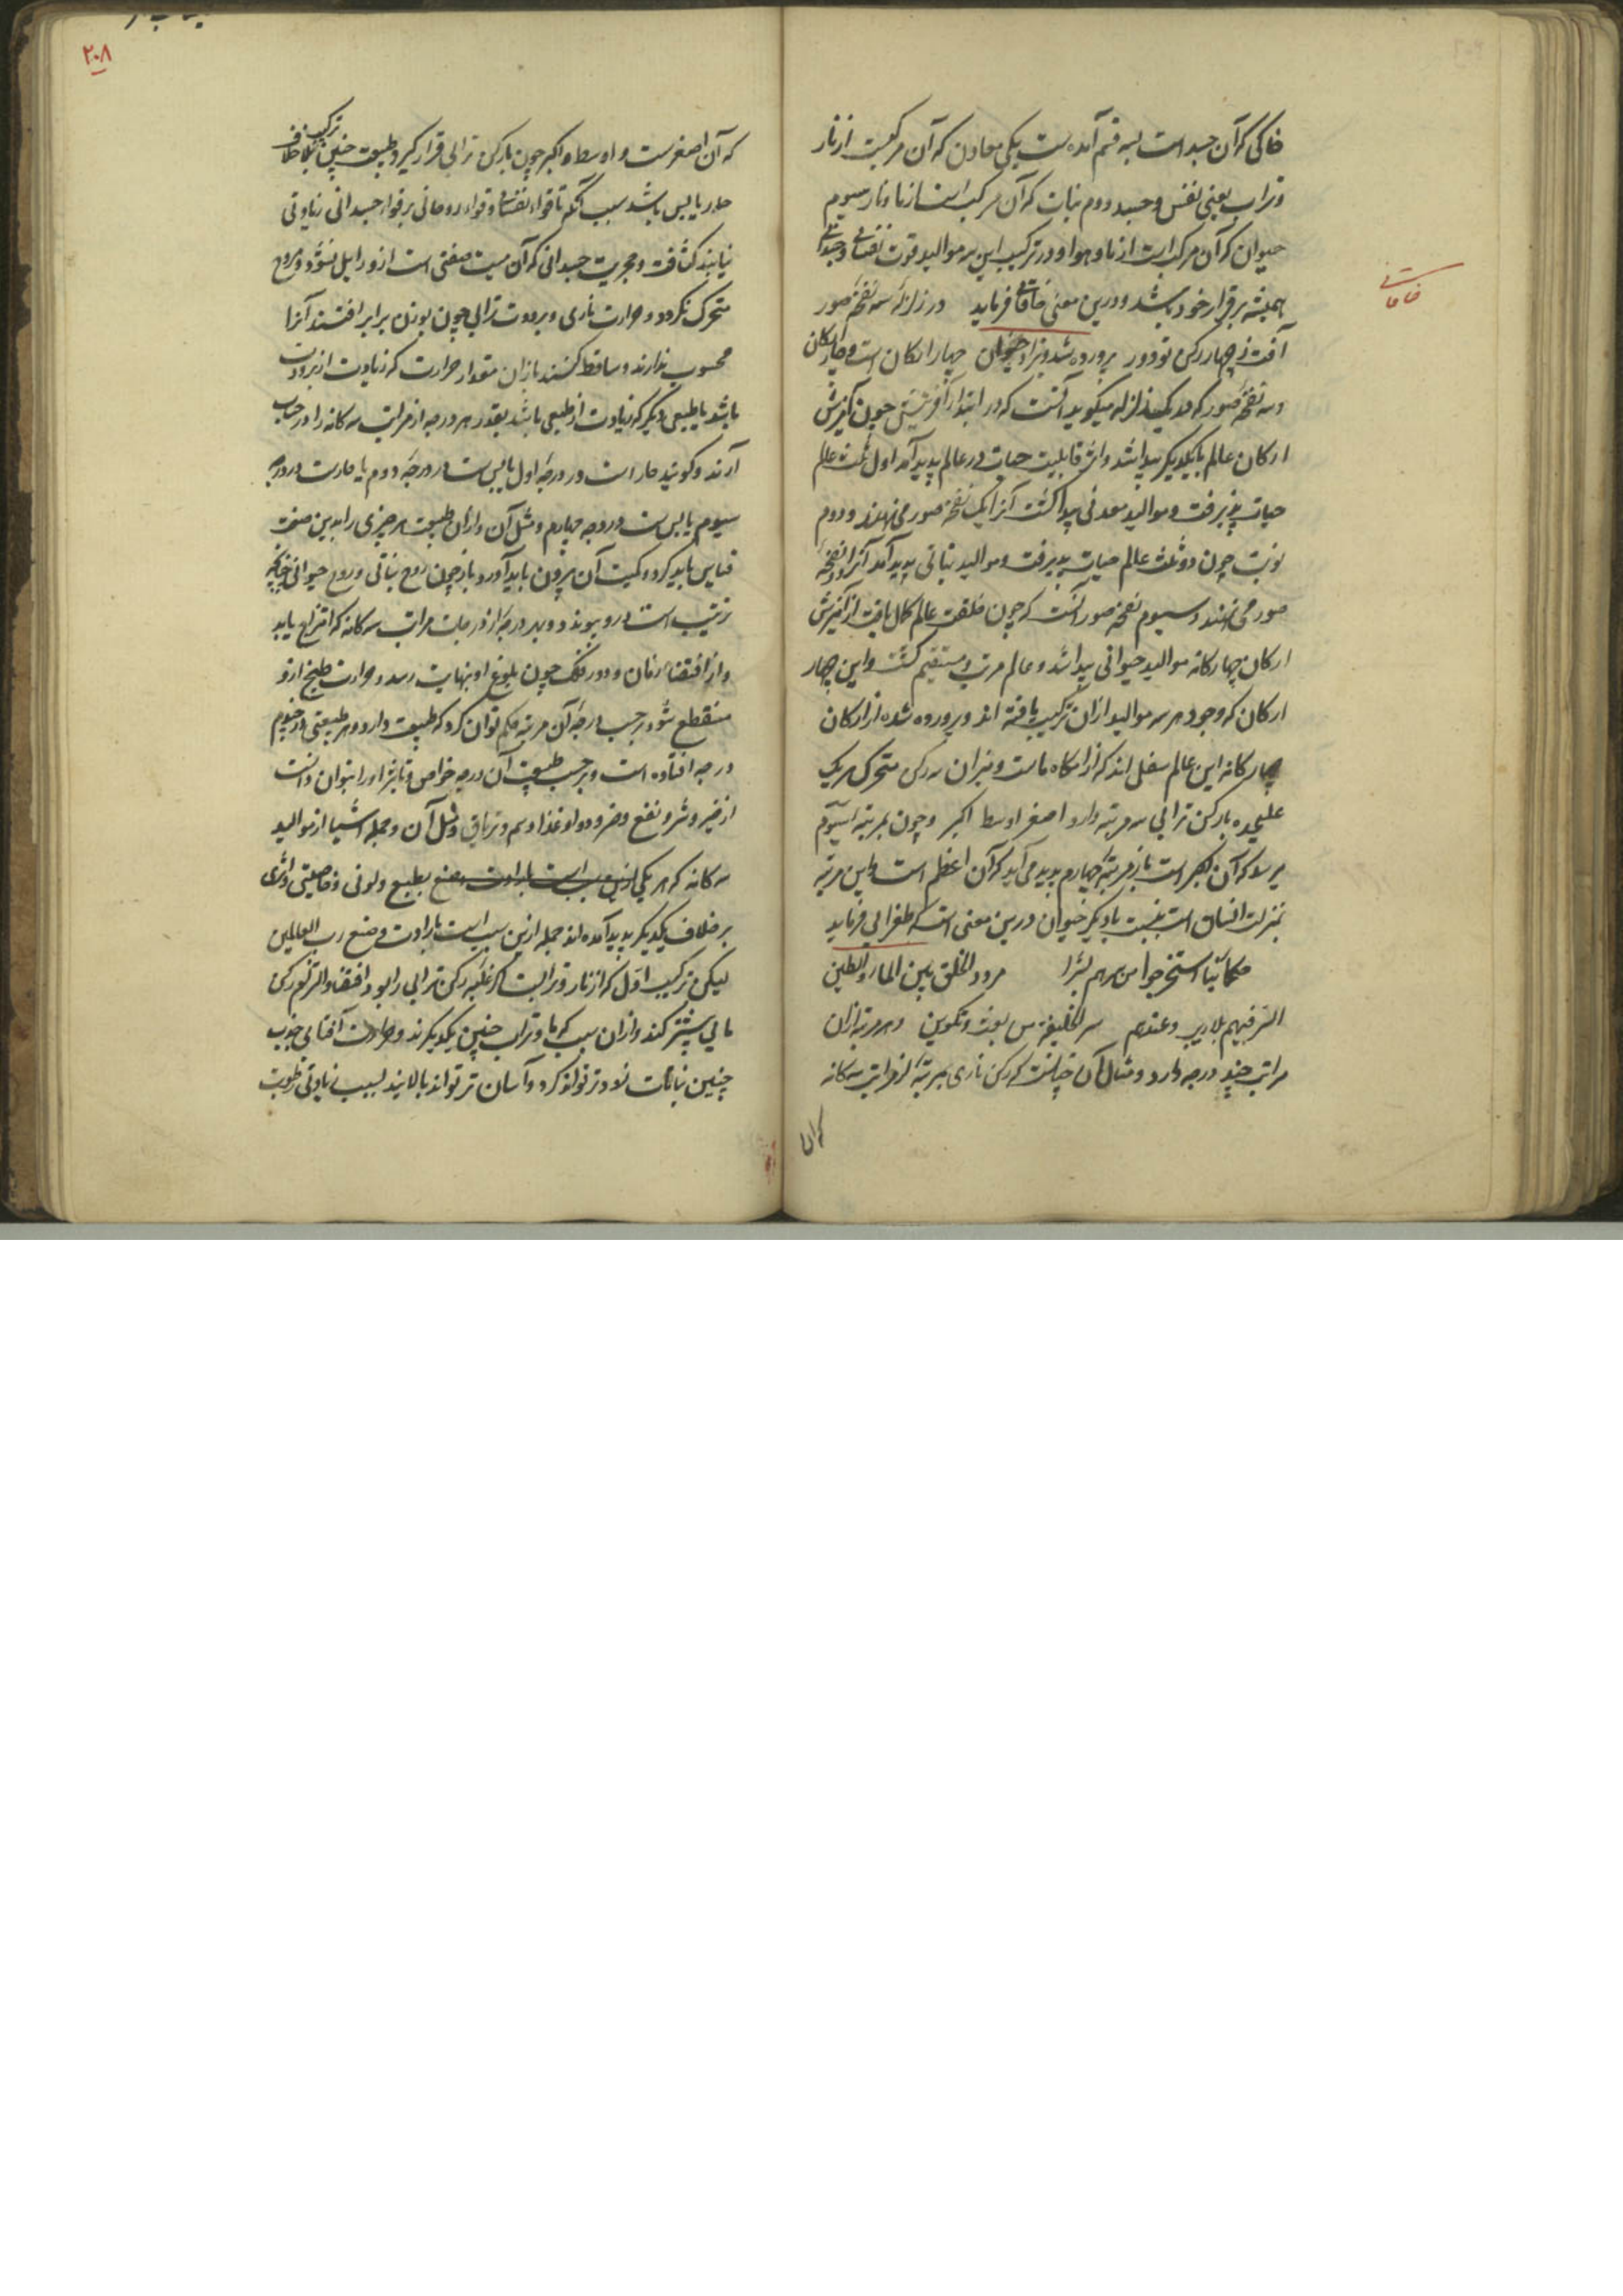 خاکی که آن جسد است بسه قسم آمده است یکی معادن که آن مرکبست از نار
و تراب یعنی نفس و جسد دوم نبات که آن مرکب است از ما و نار سیوم
حیوان که آن مرکب است از ما و هوا و در ترکیب این سه موالید قوت نفسانی و جسدانی
همیشه برقرار خود باشد و درین معنی خاقانی فرماید در زلزله سه نفخه صور
آفت ز چهار رکن تو دور پرورده شد چهار ارکان است و چهار ارکان
و سه نفخه صور که در زلزله میگوید آنست که در ابتدار آفرینش چون آمیزش
ارکان عالم با یکدیگر پیدا شد و اثر قابلیت حیات در عالم پدید آمد اول ثلث عالم
حیات پذیرفت و موالید معدنی پیدا گشت آنرا یک نفخه صور می نهند و دوم
نوبت چون دو ثلث عالم حیات پذیرفت و موالید نباتی پدید آمد آنرا دو نفخه
صور می نهند و سیوم نفخه صور آنست که چون خلقت عالم کمال یافت از آمیزش
ارکان چهارکانه موالید حیوانی پیدا شد و عالم مرتب و مستقیم گشت و این چهار
ارکان که وجود هر سه موالید ازان ترکیب یافته اند و پرورده شده از ارکان
چهارکانه این عالم سفلی اند که آرامگاه ماست و نیز آن سه رکن متحرک هر یک
علیحده بارکن ترابی سه مرتبه دارد اصغر اوسط اکبر و چون بمرتبه سیوم
میرسد که آن اکبر است باز مرتبه چهارم پدید می آید که آن اعظم است و این مرتبه
بمنزلت انسان است بنسبت با دیگر حیوان درین معنی است که طغرایی فرماید
حکمائنا استخرجوا من سرهم بشرا مردد الخلق بین الماء و الطین
السر فیهم بلاریب و عندهم سر الخلیقة من بعث و تکوین و هر مرتبه ازان
مراتب چند درجه دارد و مثال آن چنانست که رکن ناری بمرتبه از مراتب سه کانه
که آن
خاقانی
۲۰۸
که آن اصغرست و اوسط و اکبر چون بارکن ترابی قرار گیرد طبیعت چنین ترکیب بخلاف
حار یابس باشد سبب آنکه تا قوار نفسانی و قوار روحانی بر قوار جسدانی زیادتی
نیابند کثافت و حجریت جسدانی که آن میت صفتی است ازو زایل نشود و بروح
متحرک نگردد و حرارت ناری و برودت ترابی چون بوزن برابر افتند آنرا
محسوب ندارند و ساقط کنند بازان مقدار حرارت که زیادت از برودت
باشد یا طبیعی دیگر که زیادت از طبیعی باشد بقدر هر درجه از مراتب سه کانه را در حساب
آرند و گویند حار است در درجه اول یابس است در درجه دوم یا حارست در درجه
سیوم یابس است در درجه چهارم و مثل آن و ازان طبیعت هر چیزی را بدین صفت
قیاس باید کرد و کمیت آن بیرون باید آورد و باز چون روح نباتی و روح حیوانی چنانچه
ترتیب است درو پیوندد و بهر درجه از درجات مراتب سه کانه که امتزاج یابد
و از اقتضا زمان و دور فلک چون بلوغ او بنهایت رسد و حرارت طبخ ازو
منقطع شود بر حسب درجه آن مرتبه حکم توان کرد که طبیعت دارد و هر طبیعتی در چندم
درجه افتاده است و بر حسب طبیعت آن درجه خواص و تاثیر او را بتوان دانست
از خیر و شر و نفع و ضر و دوا و غذا و سم و تریاق و مثل آن و جمله اشیا از موالید
سه کانه که هر یکی ازین سبب است بارادت و صنع بطبع و لونی و خاصیتی و اثری
بر خلاف یکدیگر پدید آمده اند جمله ازین سبب است بارادت و صنع رب العالمین
لیکن ترکیب اول که از نار و ترابست اگر غلبه رکن ترابی را بود اقتضا
مایی بیشتر کند و ازان سبب که ما و تراب جنس یکدیگرند و حرارت آفتابی جذب
چنین نباتات زودتر تواند کرد و آسان تر تواند بالانید بسبب زیادتی رطوبت